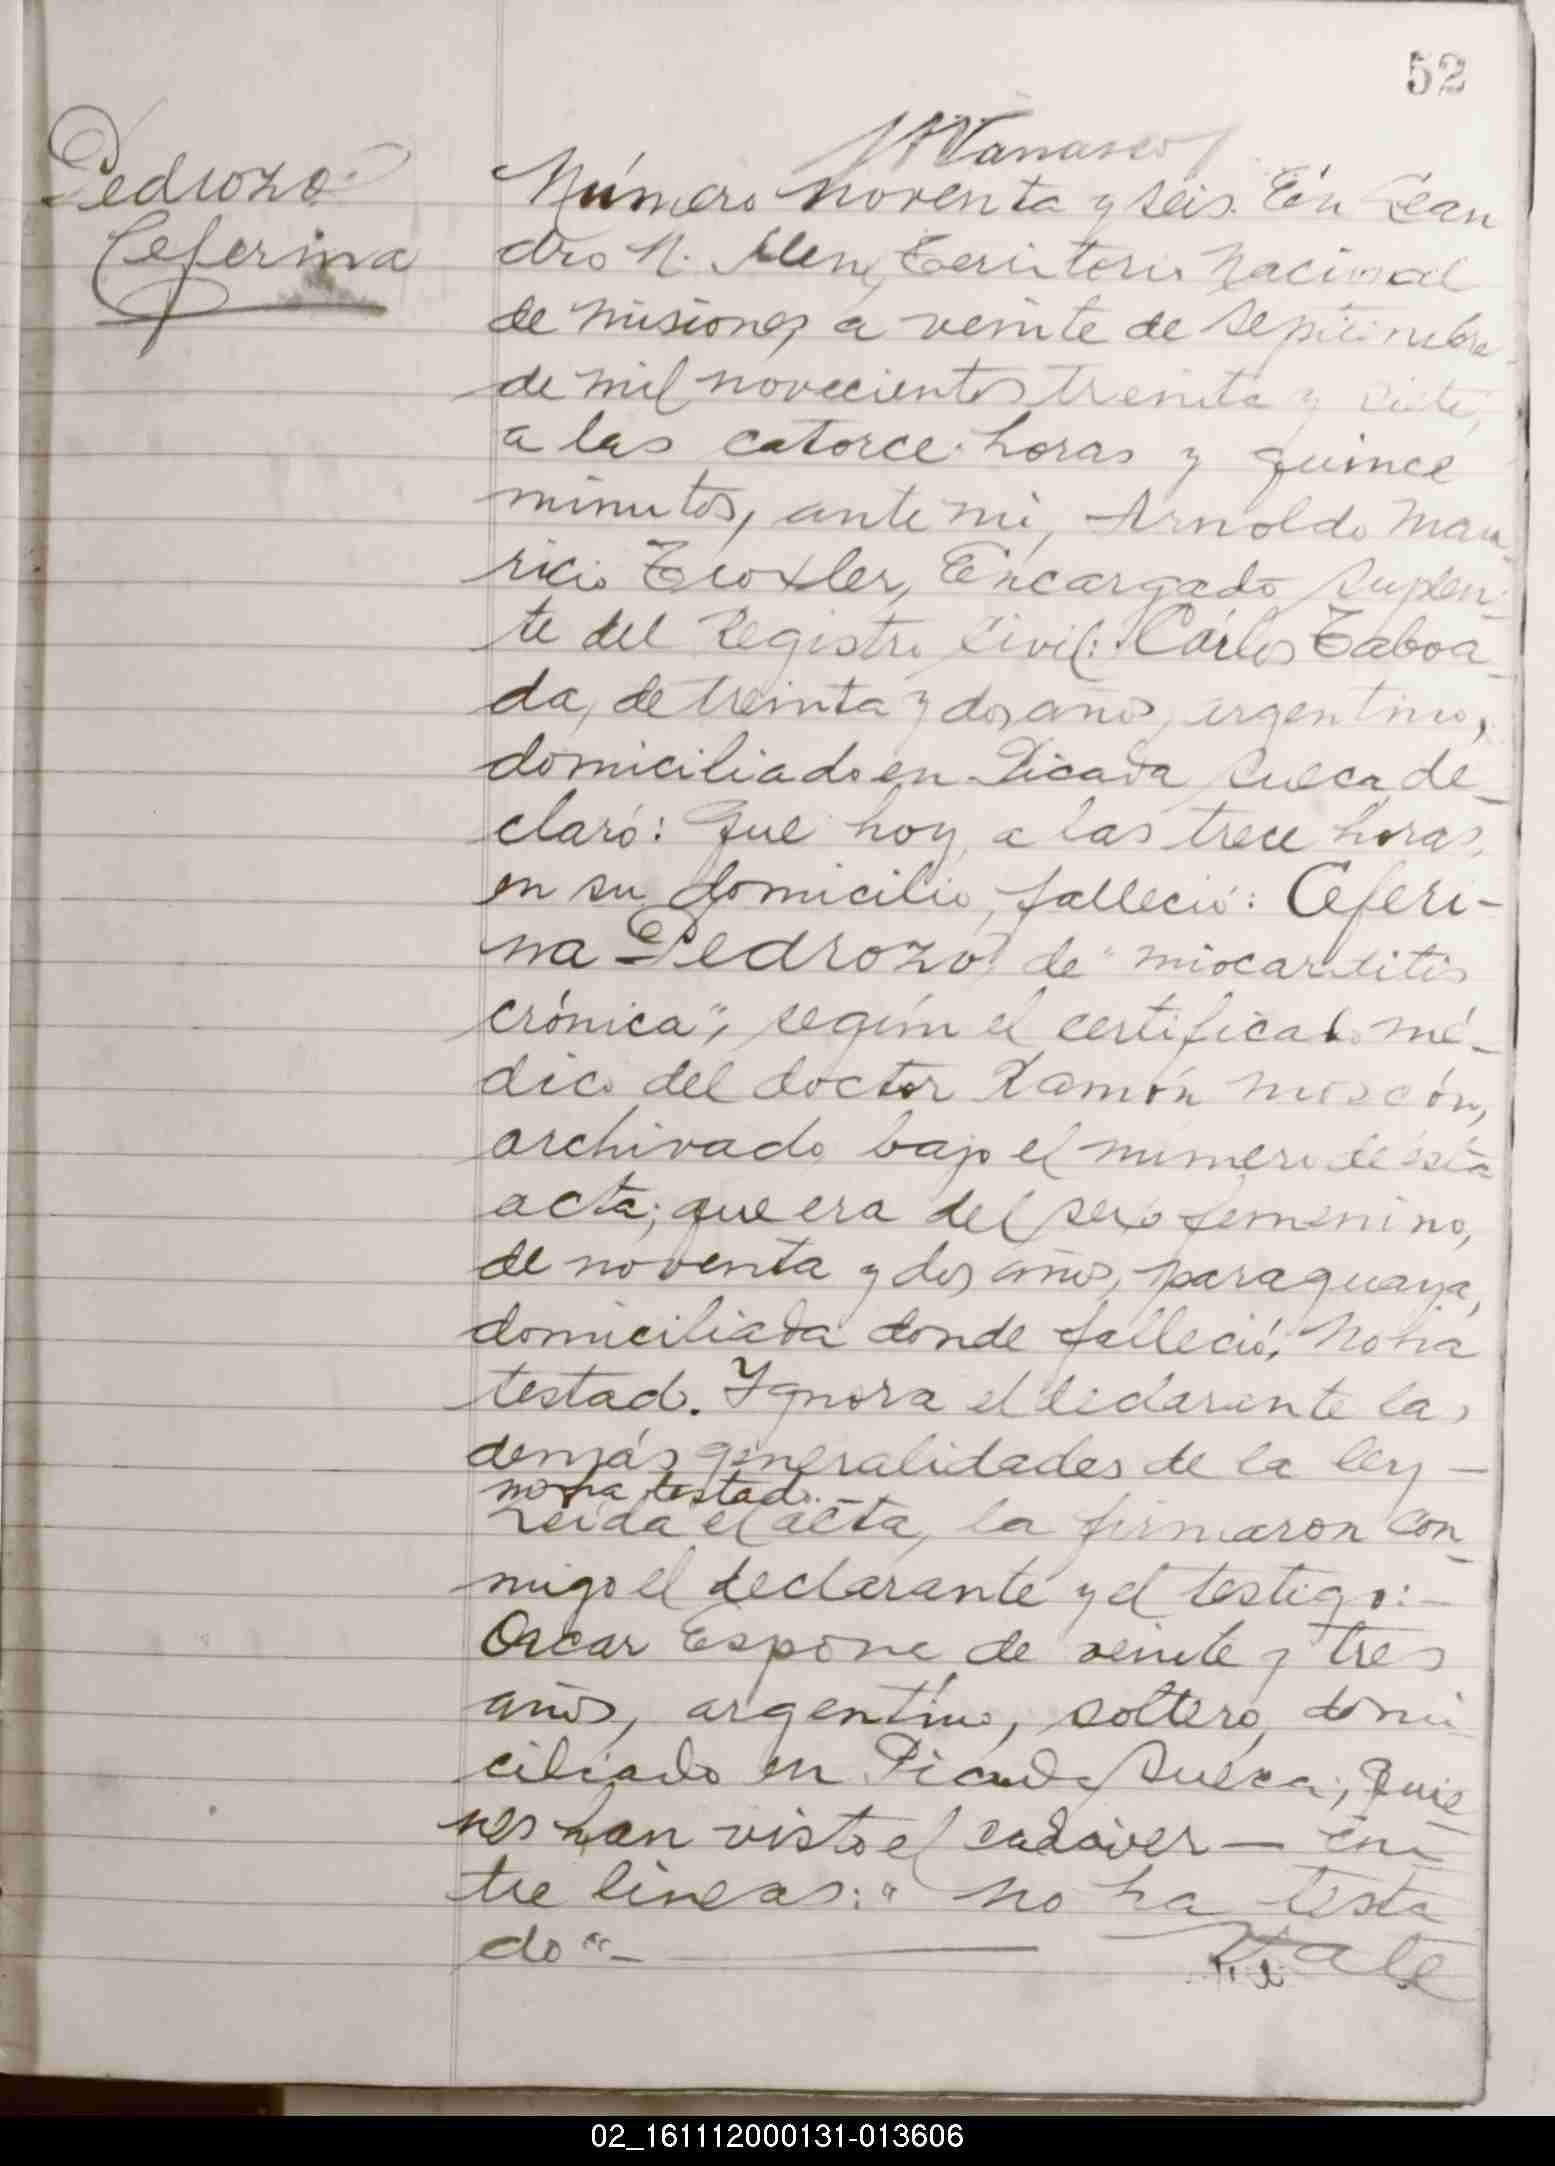 52
Pedrozo
Ceferina
Número noventa y seis. En Lean
dro N. Alem, Territorio Nacional
de Misiones, a veinte de septiembre
de mil novecientos treinta y siete,
a las catorce horas y quince
minutos, ante mi, Arnoldo Mau-
ricio Troxler, Encargado Suplen-
te del Registro Civil: Cárlos Taboa-
da, de treinta y dos años, argentino,
domiciliado en Picada Sueca, de-
claró: Que hoy, a las trece horas,
en su domicilio, falleció: Ceferi-
na Pedrozo, de "miocarditis
crónica", según el certificado mé-
dico del doctor Ramón
archivado bajo el número de ésta
acta; que era del sexo femenino,
de noventa y dos años, paraguaya,
domiciliada donde falleció; No ha
testado. Ignora el declarante las
demás generalidades de la ley —
no ha testado.
Leída el acta, la firmaron con-
migo el declarante y el testigo:-
Oscar Espone de veinte y tres
años, argentino, soltero, domi
ciliado en Picada Sueca; Quie-
nes han visto el cadáver — En-
tre líneas: "no ha testa
do"- Vale
02_161112000131-013606